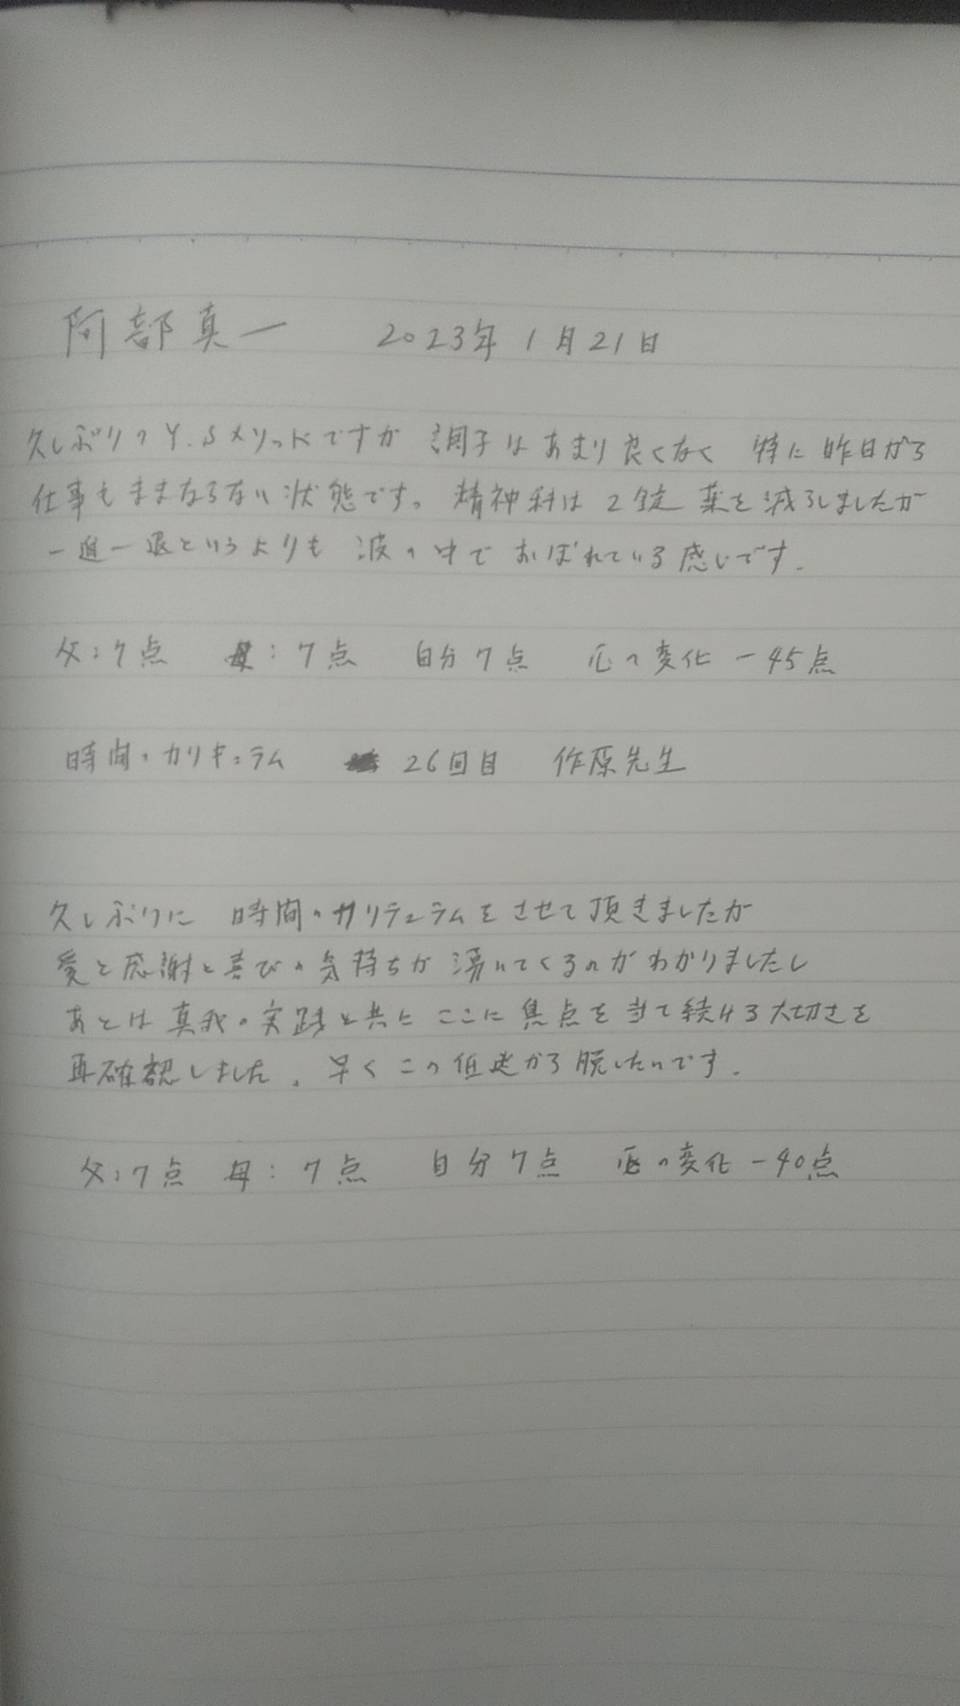 阿部真一 2023年1月21日
久しぶりのY.Sメソッドですが 調子はあまり良くなく 特に昨日から
仕事もままならない状態です。精神科は2錠 薬を減らしましたが
一進一退というよりも 波の中で おぼれている感じです.
父:7点 母:7点 自分7点 心の変化 -45点
時間のカリキュラム 26回目 作原先生
久しぶりに 時間のカリキュラムをさせて頂きましたが
愛と感謝と喜びの気持ちが湧いてくるのがわかりましたし
あとは真我の実践と共に ここに焦点を当て続ける大切さを
再確認しました. 早くこの低迷から脱したいです.
父:7点 母:7点 自分7点 心の変化 -40点